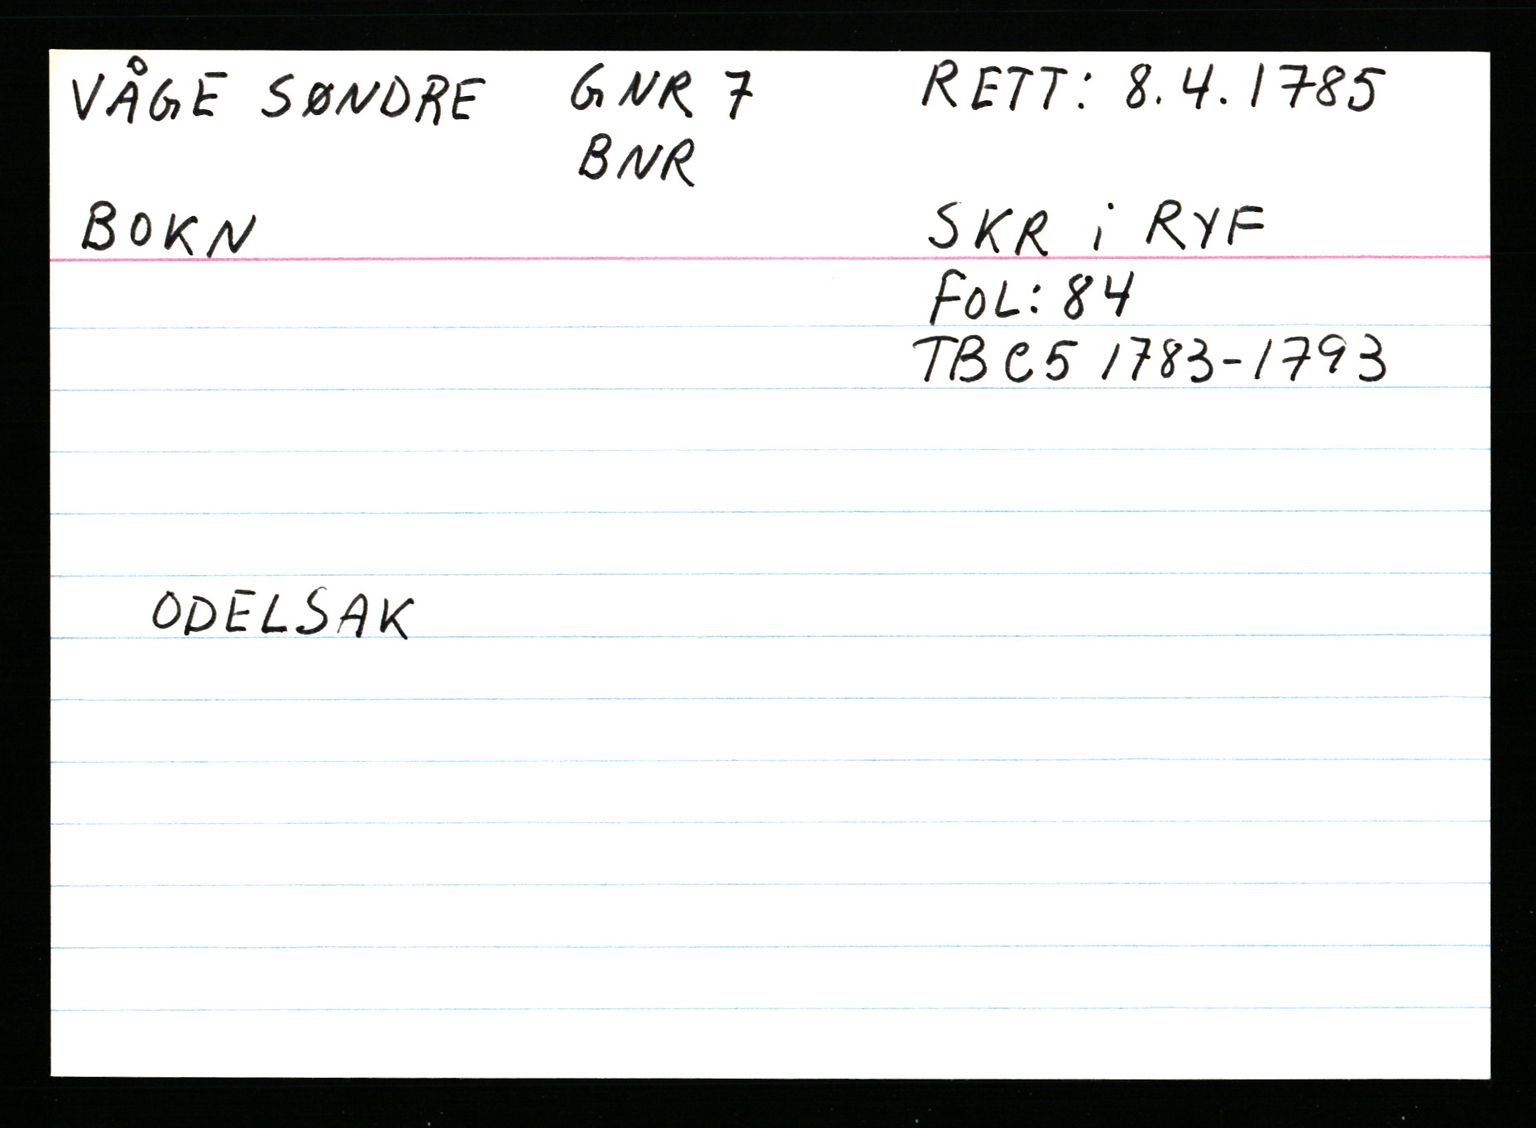 VÅGE SØNDRE GNR 7 RETT: 8.4.1785
BNR
BOKN SKR i RYF
FOL: 84
TB C5 1783-1793
ODELSAK